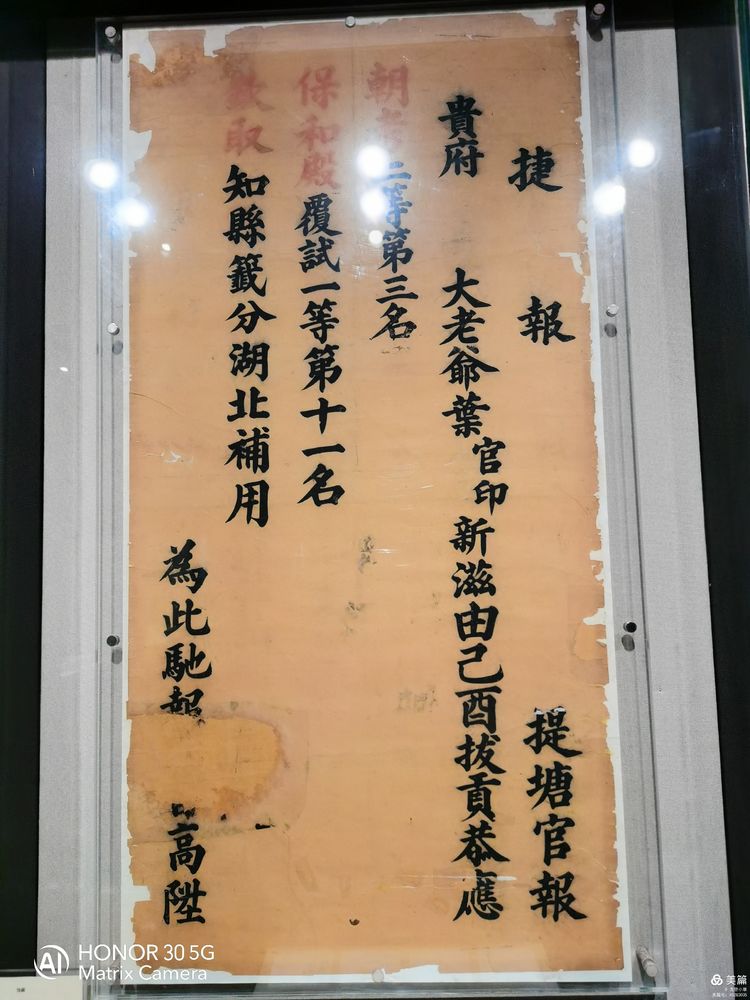 捷報 提塘官報
貴府 大老爺葉官印新滋由己酉拔貢恭應
朝考二等第三名
保和殿覆試一等第十一名
欽取知縣籤分湖北補用
為此馳報
高陞
HONOR 30 5G
Matrix Camera
美篇